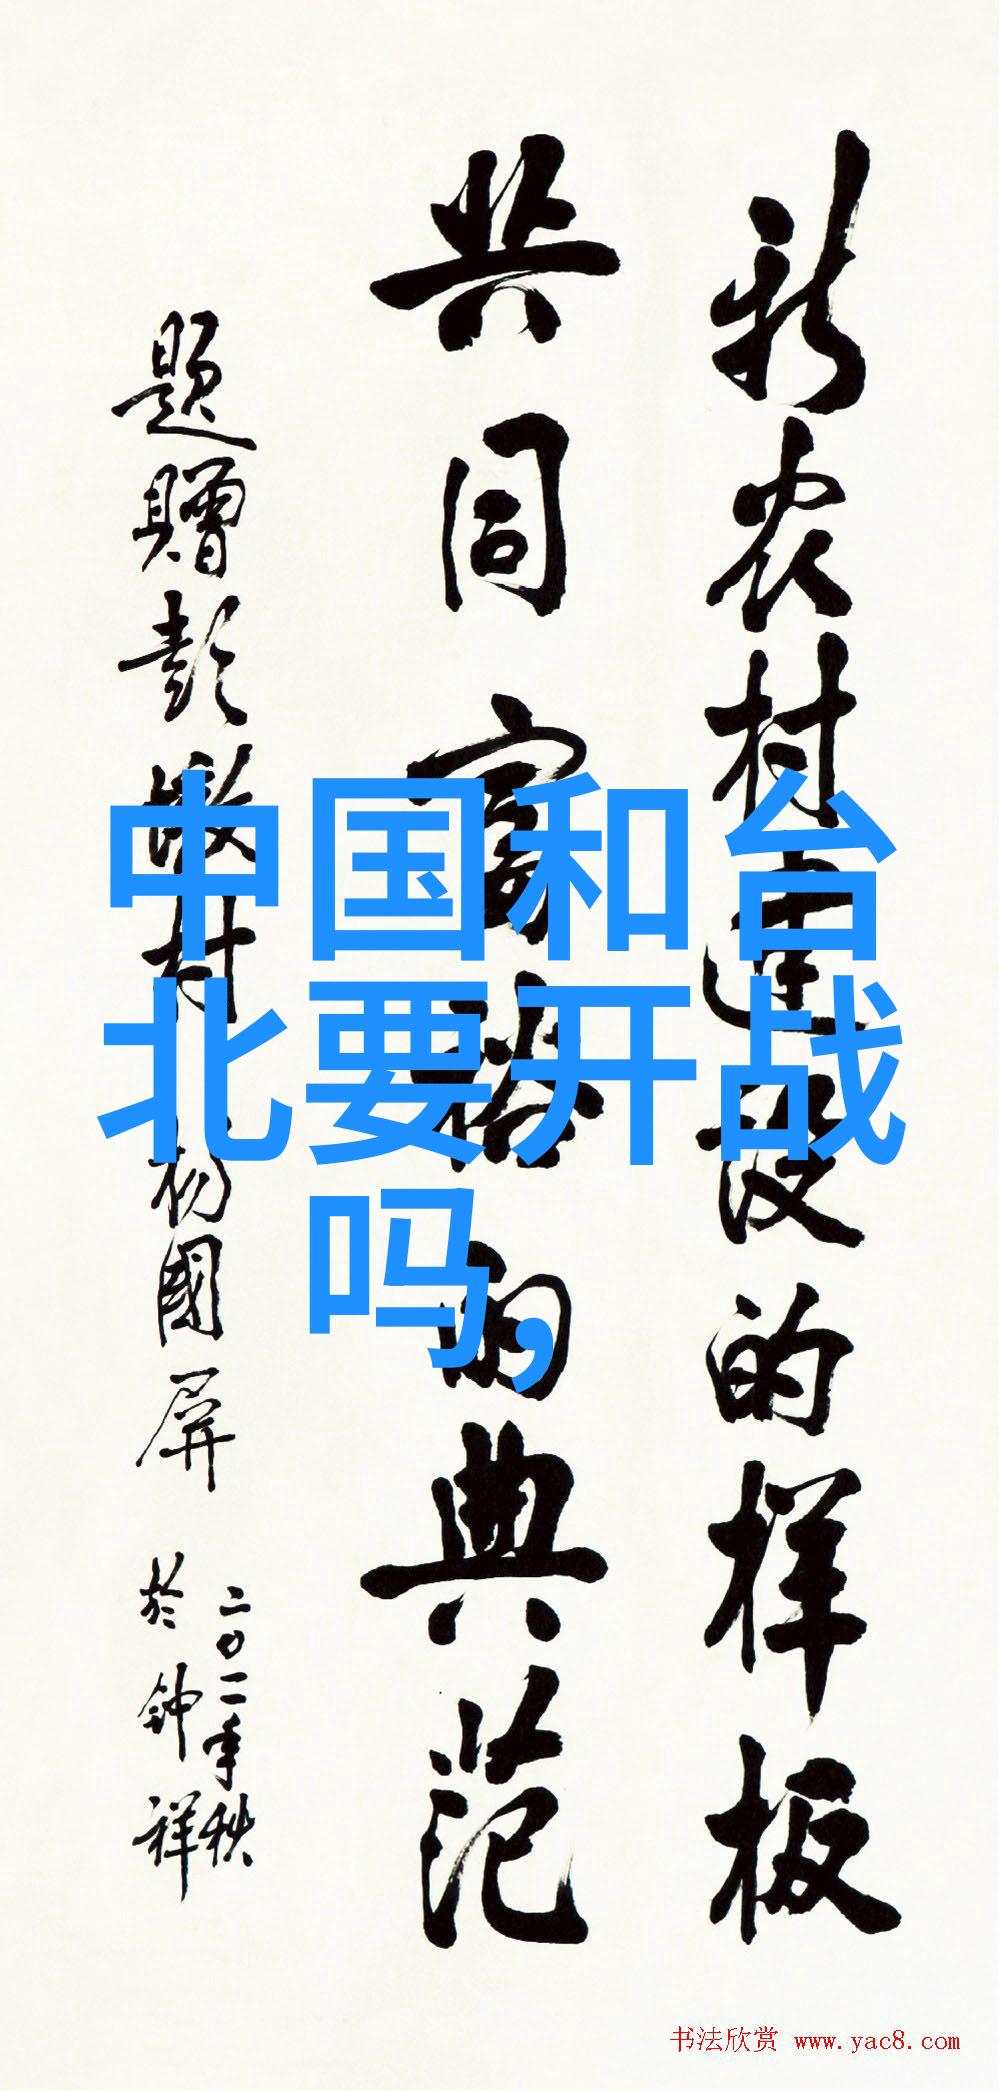 新农村建设的样板
共同富裕的典范
题赠彭墩村杨国屏
二〇一一年秋
於钟祥
中国和台
北要开战
吗,
书法欣赏 www.yac8.com